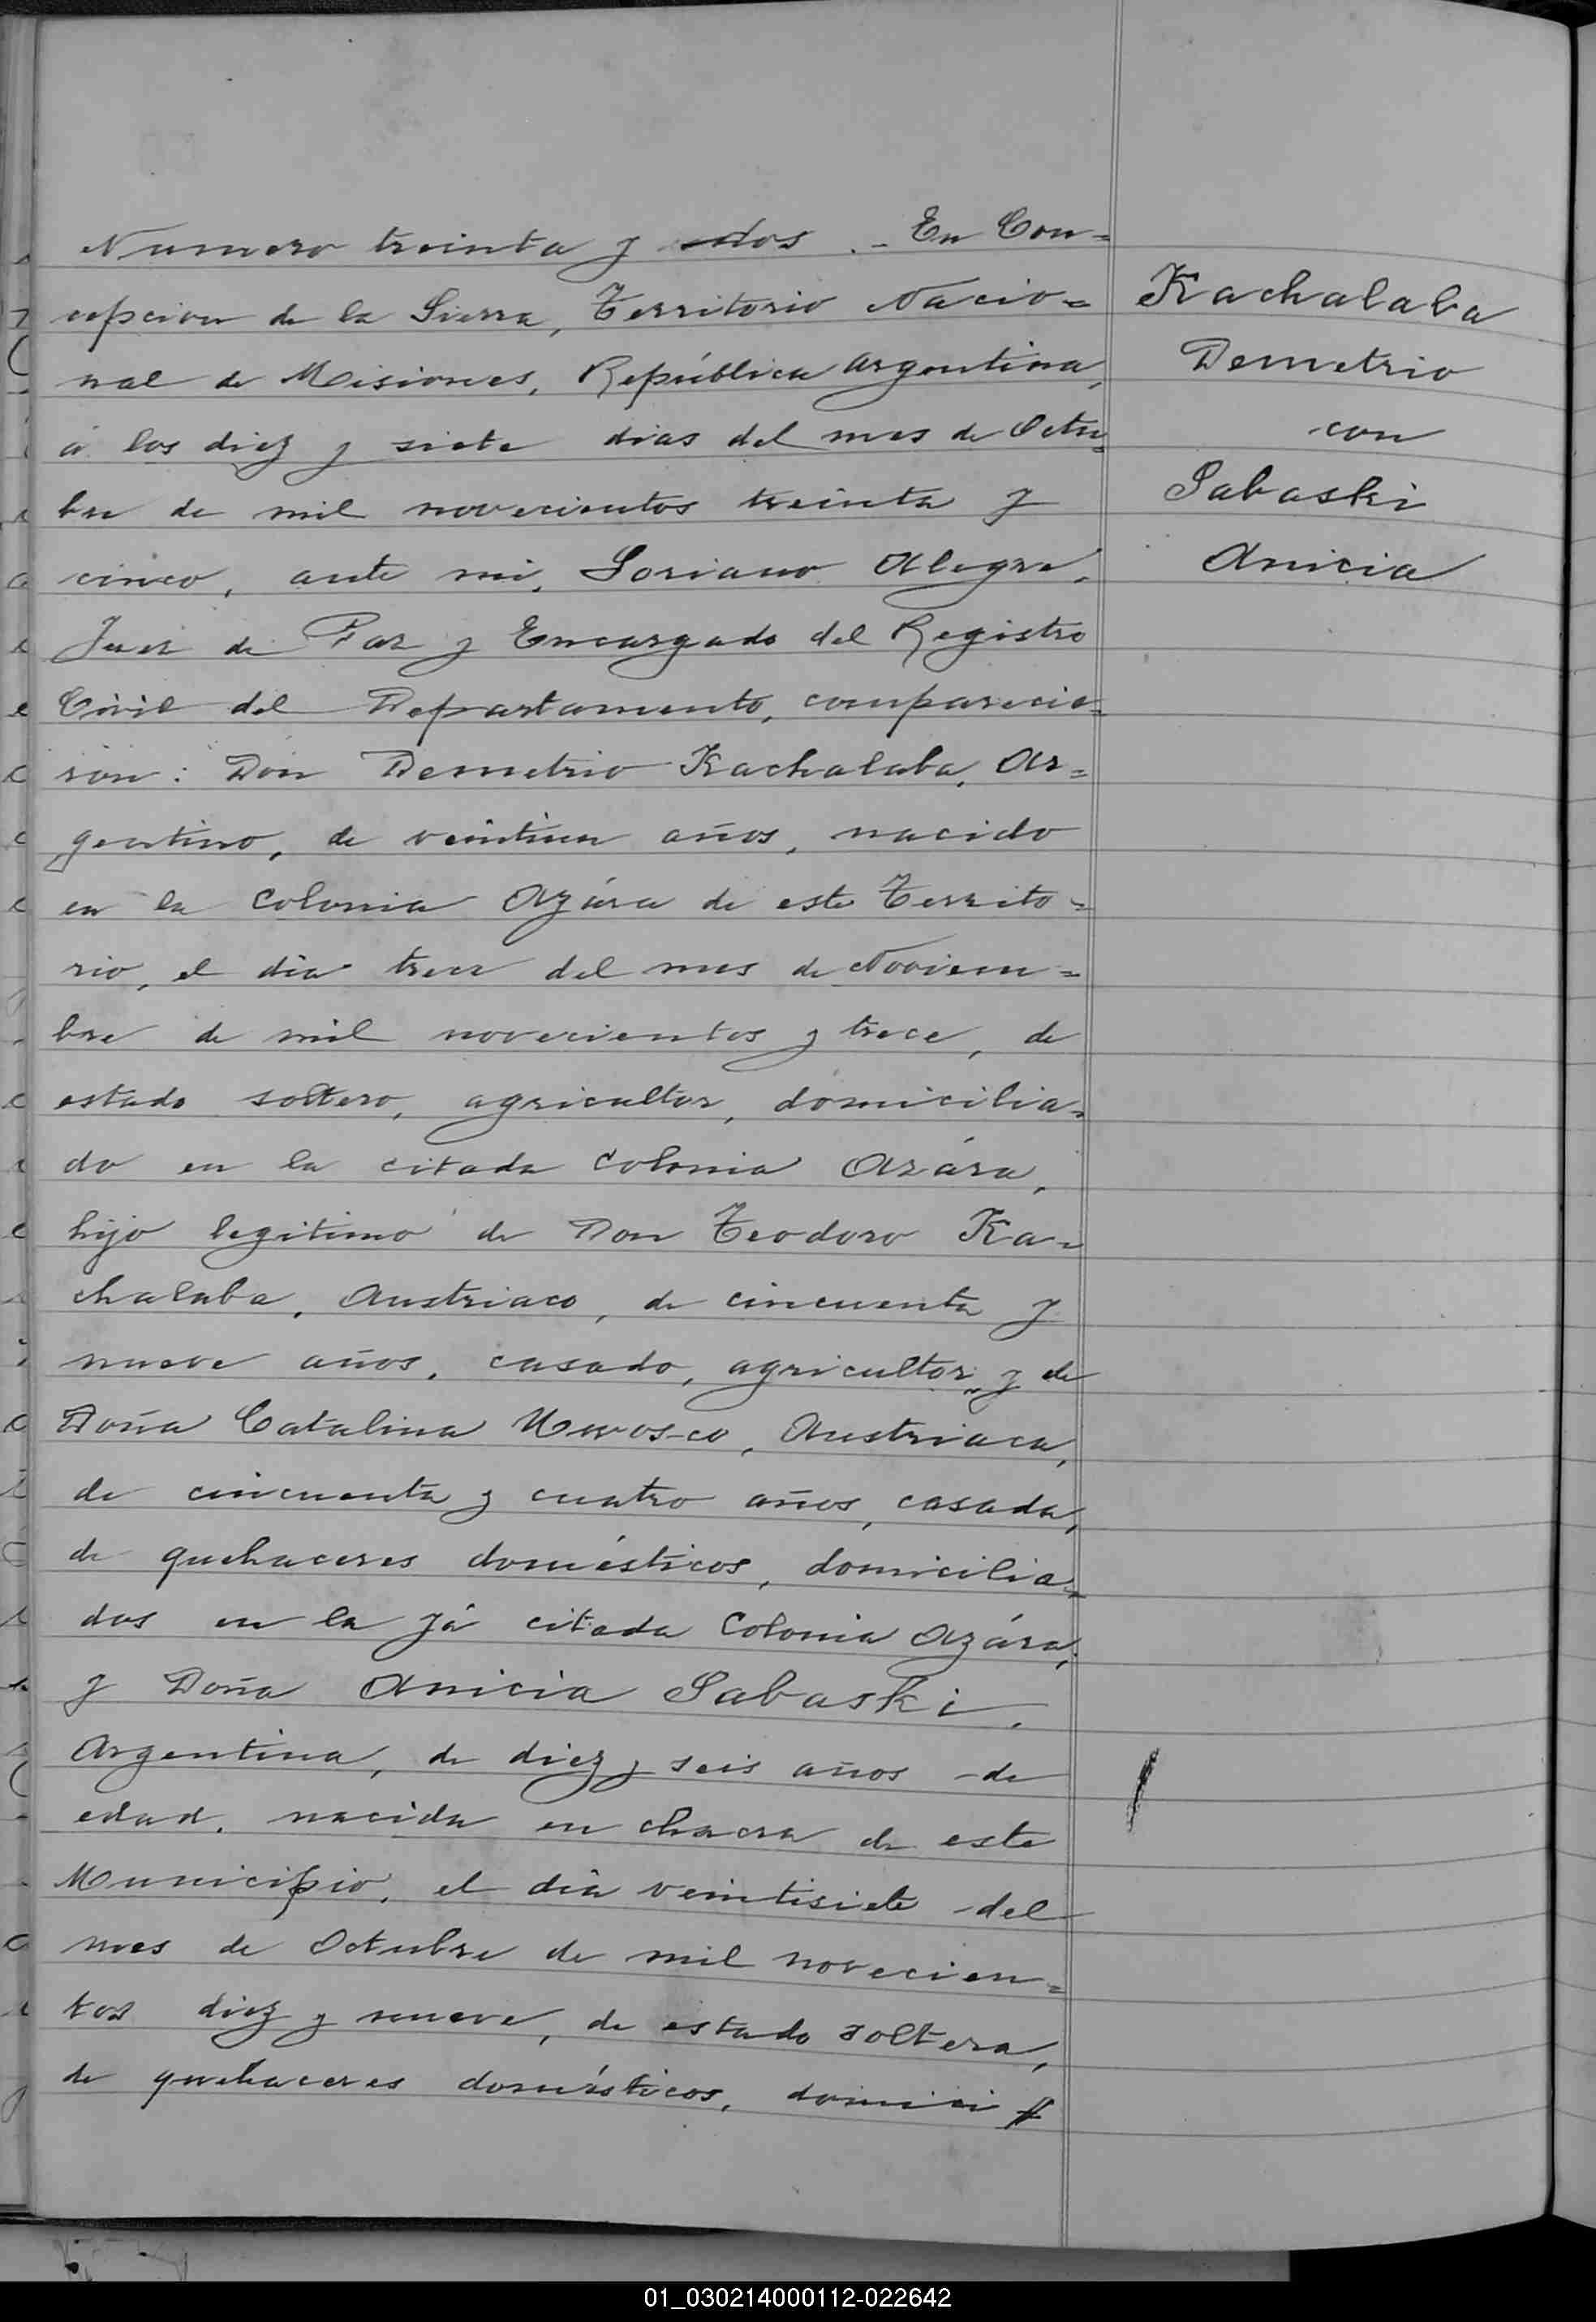 Numero treinta y dos.- En Con=
cepcion de la Sierra, Territorio Nacio=
nal de Misiones, República Argentina,
á los diez y siete dias del mes de Octu=
bre de mil novecientos treinta y
cinco, ante mi, Soriano Alegre,
Juez de Paz y Encargado del Registro
Civil del Departamento, comparecie=
ron: Don Demetrio Kachalaba, Ar=
gentino, de veintiun años, nacido
en la Colonia Azára de este Territo=
rio, el dia trece del mes de Noviem=
bre de mil novecientos y trece, de
estado soltero, agricultor, domicilia=
do en la citada Colonia Azára,
hijo legitimo de Don Teodoro Ka=
chalaba, Austriaco, de cincuenta y
nueve años, casado, agricultor, y de
Doña Catalina, Austriaca,
de cincuenta y cuatro años, casada,
de quehaceres domésticos, domicilia=
dos en la yá citada Colonia Azára,
y Doña Anicia Sabaski,
Argentina, de diez y seis años de
edad, nacida en chacra de este
Municipio, el dia veintisiete del
mes de Octubre de mil novecien=
tos diez y nueve, de estado soltera,
de quehaceres domésticos, domici//
Kachalaba
Demetrio
con
Sabaski
Anicia
01_030214000112-022642